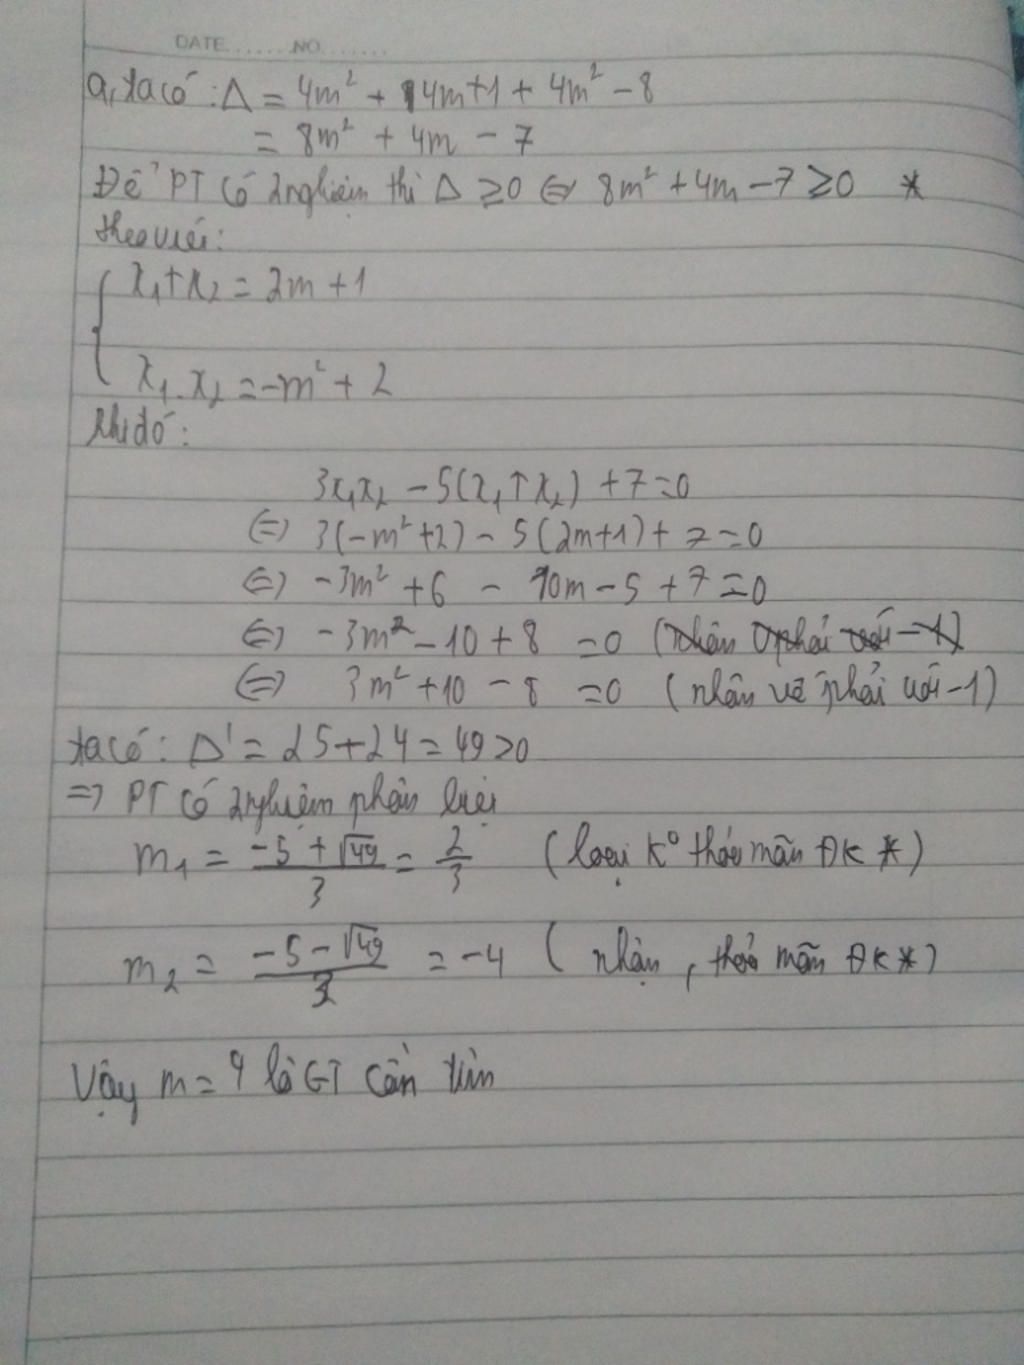 DATE.......NO.......
a, ta có: Δ = 4m² + 4m+1 + 4m² - 8
= 8m² + 4m - 7
Để PT có 2 nghiệm thì Δ ≥0 ⇔ 8m² + 4m - 7 ≥0 *
theo viét:
x₁+x₂ = 2m + 1
x₁.x₂ = -m² + 2
khi đó:
3x₁x₂ - 5(x₁+x₂) + 7 = 0
⇔ 3(-m²+2) - 5(2m+1) + 7 = 0
⇔ -3m² + 6 - 10m - 5 + 7 = 0
⇔ -3m² - 10 + 8 = 0 (nhân vế phải với -1)
⇔ 3m² + 10 - 8 = 0 (nhân vế phải với -1)
ta có: Δ' = 25 + 24 = 49 >0
=> PT có 2 nghiệm phân biệt
m₁ = (-5 + √49)/3 = 2/3 (loại k° thỏa mãn ĐK *)
m₂ = (-5 - √49)/3 = -4 ( nhận, thỏa mãn ĐK *)
Vậy m = 4 là GT cần tìm